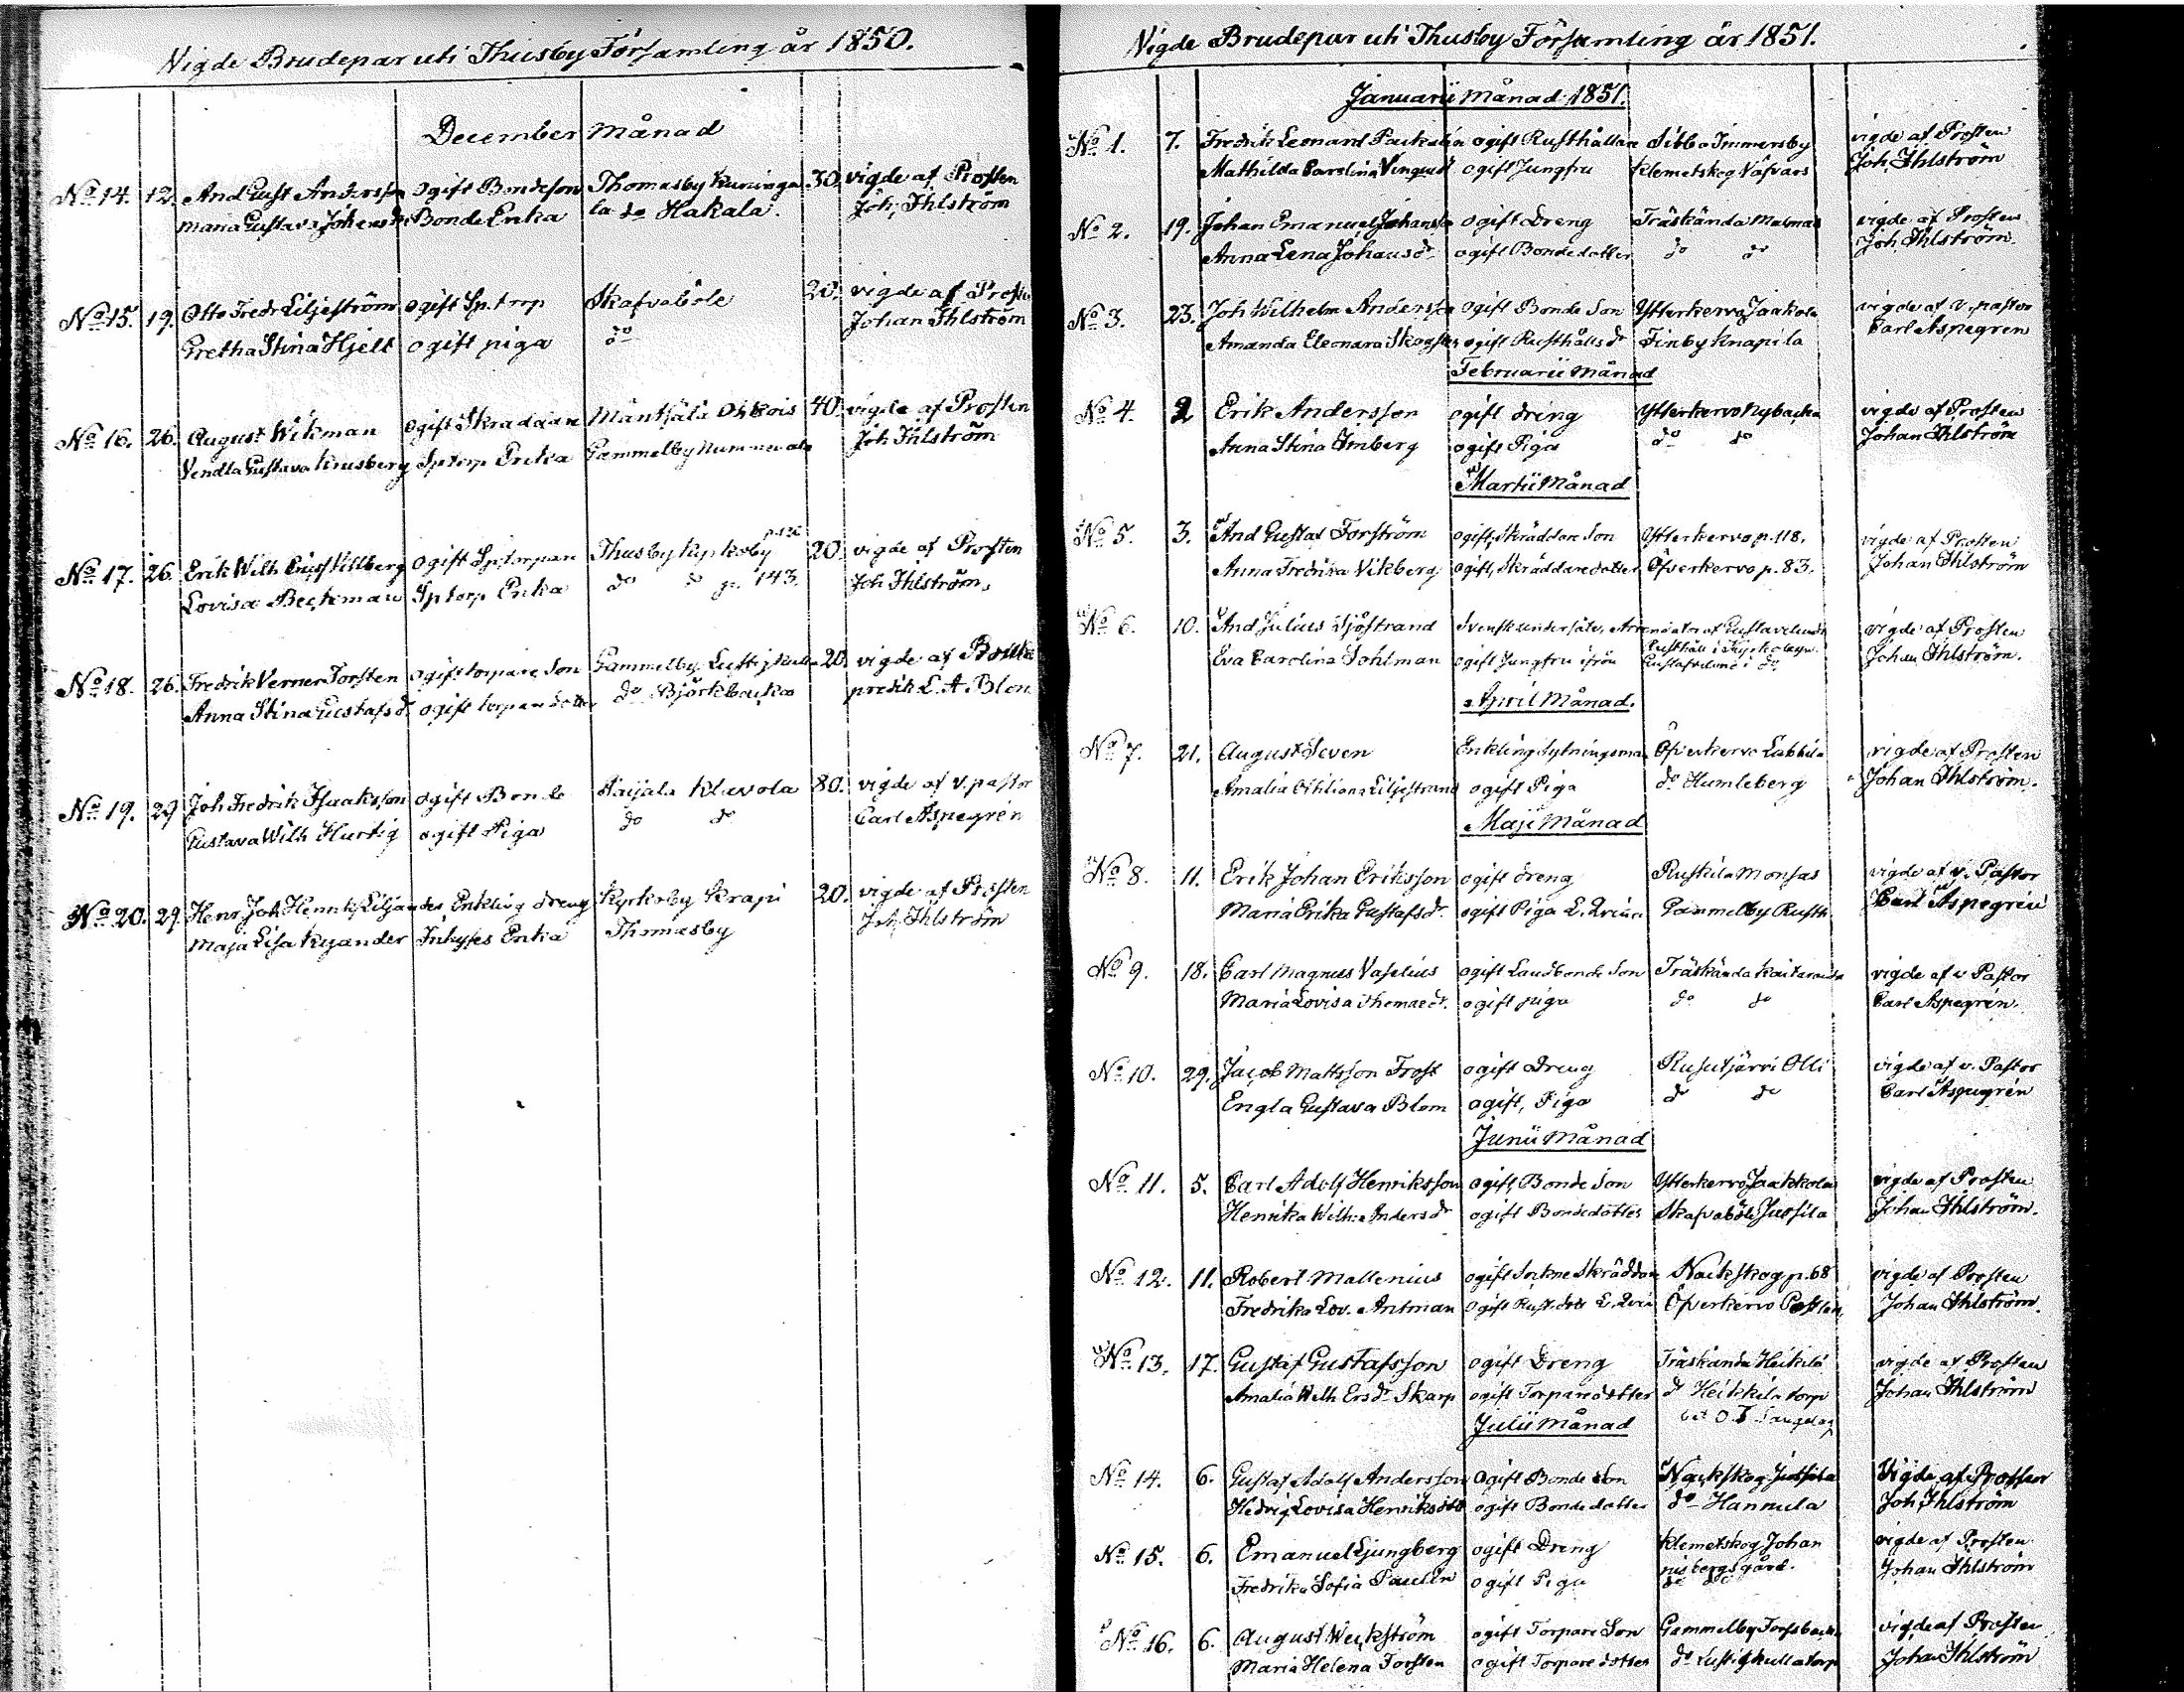 Vigde Brudepar uti Thusby Församling år 1850.
December Månad
No 14. 12. And Gust Andersson ogift Bondeson Thomasby Kuninga 30. vigde af Prosten
Maria Gustava Johansdr Bonde Enka la do Hakala. Joh. Ihlström
No 15. 19. Otto Fredr Liljeström ogift Sp. torp Skafvaböle 20. vigde af Prosten
Gretha Stina Hjelt ogift piga do Johan Ihlström
No 16. 26. August Wikman ogift Skradaan Mäntsälä Ohkois 40. vigde af Prosten
Vendla Gustava Krusberg Sptorp Enka Gammelby Nummenala Joh Ihlström
No 17. 26. Erik Wilh Villberg ogift Sptorpan Thusby Kyrkoby 20. vigde af Prosten
Lovisa Beckman Sptorp Enka do do p. 143. Joh Ihlström.
No 18. 26. Fredrik Verner Forsten ogift torpare Son Gammelby Lustigkulla 20. vigde af
Anna Stina Gustafsdr ogift torpare dotter do Björkbacka predik L. A. Blom
No 19. 29 Joh Fredrik Isaksson ogift Bonde Klavola 80. vigde af v. pastor
Gustava Wilh Hurtig ogift Piga do do Carl Aspegrén
No 20. 29. Henr Joh Henriks Liljander Enkling dreng Kyrkoby Krapi 20. vigde af Prosten
Maja Lisa Kyander Inhyses Enka Thomasby Joh. Ihlström
Vigde Brudepar uti Thusby Församling år 1851.
Januarii Månad 1851.
No 1. 7. Fredrik Leonard Packalén ogift Rusthållare Sibbo Immersby vigde af Prosten
Mathilda Carolina Vinqvist ogift Jungfru Klemetskog Väfvars Joh. Ihlström
No 2. 19. Johan Emanuel Johansson ogift Dreng Träskända Malmas vigde af Prosten
Anna Lena Johansdr ogift Bondedotter do do Joh Ihlström.
No 3. 23. Joh Wilhelm Andersson ogift Bonde Son Ytterkervo Jaakola vigde af v. pastor
Amanda Eleonara Skogster ogift Rusthålls dr Finby Knapila Carl Aspegren
Februarii Månad
No 4. 2 Erik Andersson ogift dreng Ytterkervo Nybacka vigde af Prosten
Anna Stina Imberg ogift Piga do do Johan Ihlström
Martii Månad
No 5. 3. And Gustaf Forström ogift, Skräddare Son Ytterkervo p. 118. vigde af Prosten
Anna Fredrika Vikberg ogift, Skräddare dotter Öfverkervo p. 83. Johan Ihlström
No 6. 10. And Julius Sjöstrand Svensk undersåte, Arrendator af Gustavelunds vigde af Prosten
Rusthåll i Kyrkobyn.
Eva Carolina Sohlman ogift Jungfru ifrån Gustafvelund i do Johan Ihlström.
April Månad.
No 7. 21. August Seven Enkling Sytningsman Öfverkervo Labbila vigde af Prosten
Amalia Othiliana Liljestrand ogift Piga do Humleberg Johan Ihlström.
Maji Månad
No 8. 11. Erik Johan Eriksson ogift dreng Ruskila Monsas vigde af v. Pastor
Maria Erika Gustafsdr. ogift Piga L. Qvinna Gammelby Rusth. Carl Aspegrén
No 9. 18. Carl Magnus Vaselius ogift Landbonde Son Träskända vigde af v Pastor
Maria Lovisa Thomasdr. ogift piga do do Carl Aspegrén.
No 10. 29. Jacob Mattsson Frost ogift Dreng Rusutjärvi Olli vigde af v. Pastor
Engla Gustava Blom ogift, Piga do do Carl Aspegrén
Junii Månad
No 11. 5. Carl Adolf Henriksson ogift, Bonde Son Ytterkervo Jaakkola vigde af Prosten
Henrika Wilh:a Anders dr ogift Bondedotter Skafvaböle Jussila Johan Ihlström.
No 12. 11. Robert Mallenius ogift Sockne Skräddare Nackskog p. 68 vigde af Prosten
Fredrika Lov. Antman ogift Rust. dotr L. Qvin Öfverkervo Johan Ihlström.
No 13. 17. Gustaf Gustafsson ogift Dreng Träskända Heikilä vigde af Prosten
Amalia Wilh Ersdr Skarp ogift Torparedotter do Heikkilä torp Johan Ihlström
Julii Månad
No 14. 6. Gustaf Adolf Andersson ogift Bonde Son Nackskog Jussila Vigde af Prosten
Hedvig Lovisa Henriksdotr ogift Bondedotter do Hannula Joh. Ihlström
No 15. 6. Emanuel Ljungberg ogift Dreng Klemetskog Johan vigde af Prosten
nisbergs gård.
Fredrika Sofia Paulin ogift Piga do do Johan Ihlström
No 16. 6. August Weckström ogift Torpare Son Gammelby Forsbacka vigde af Prosten
Maria Helena Forsten ogift Torpare dotter do Lustigkulla torp Johan Ihlström